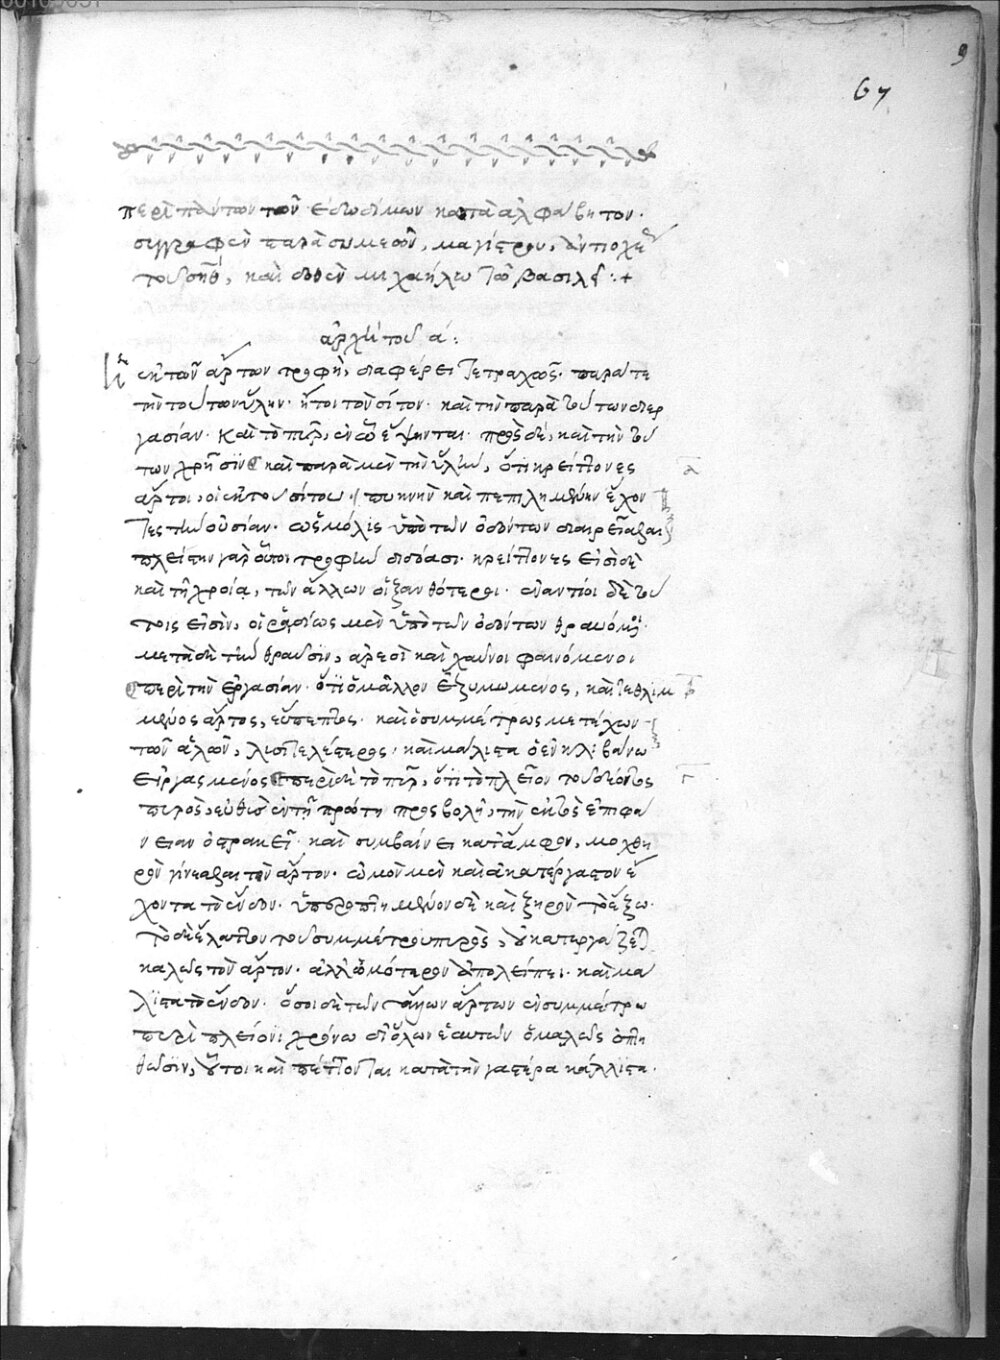 9
67
περὶ πάντων τῶν ἐδωδίμων κατὰ ἀλφάβητον.
συγγραφὲν παρὰ συμεὼν, μαγίστρου, ἀντιοχε
τοῦ σὴθ, καὶ δοθὲν μιχαήλω τῶ βασιλεῖ :+
ἀρχὴ τοῦ α :
ἐκ τῶν ἄρτων τροφὴ, διαφέρει τετραχῶς. παρά τε
τὴν τούτων ὕλην. ἤτοι τὸν σίτον. καὶ τὴν παρὰ τούτων ἐργ
γασίαν. καὶ τὸ πῦρ, ἐν ῶ ἕψηνται. πρὸς δέ, καὶ τὴν τού
των χρῆσιν καὶ παρὰ μὲν τὴν ὕλην, ὅτι κρείττονες
ἄρτοι, οἱ ἐκ τοῦ σίτου πυκνὴν καὶ πεπιλημένην ἔχον
τες τὴν οὐσίαν. ὡς μόλις ὑπὸ τῶν ὀδόντων διαιρεῖσθαι
πλείστην γὰρ οὗτοι τροφὴν διδόασι. κρείττονες εἰσὶ δὲ
καὶ τῆ χροία, τῶν ἄλλων οἱ ξανθότεροι. ἐναντίοι δὲ τού
τοις εἰσὶν, οἱ ραδίως μὲν ὑπὸ τῶν ὀδόντων θραυόμενοι.
μετὰ δὲ τὴν θραῦσιν, ἀραιοὶ καὶ χαῦνοι φαινόμενοι
περὶ τὴν ἐργασίαν. ὅτι ὁ μᾶλλον ἐζυμωμένος, καὶ τεθλιμ
μένος ἄρτος, εὔπεπτος. καὶ ὁ συμμέτρως μετέχων
τῶν ἁλῶν, λυσιτελέστερος. καὶ μάλιστα ὁ ἐν κλιβάνω
εἰργασμένος περὶ δὲ τὸ πῦρ, ὅτι τὸ πλεῖον τοῦ δέοντος
πυρὸς, εὐθὺς ἐν τῆ πρώτη προσβολῆ, τὴν ἐκτὸς ἐπιφά
νειαν ὀστρακεῖ. καὶ συμβαίνει κατ' ἄμφω, μοχθη
ρὸν γίνεσθαι τὸν ἄρτον. ὠμὸν μὲν καὶ ἀκατέργαστον ἔ
χοντα τὸ ἔνδον. ὑπεροπτημένον δὲ καὶ ξηρὸν τὸ ἔξω.
τὸ δὲ ἔλαττον τοῦ συμμέτρου πυρὸς, οὐ κατεργάζεται
καλῶς τὸν ἄρτον. ἀλλ' ὠμότερον ἀπολείπει. καὶ μά
λιστα τὸ ἔνδον. ὅσοι δὲ τῶν ἄρτων ἐν συμμέτρω
πυρὶ πλείονι χρόνω δι' ὅλων ἑαυτῶν ὁμαλῶς ὀπτη
θῶσιν, οὗτοι καὶ πέττονται κατὰ τὴν γαστέρα κάλλιστα.